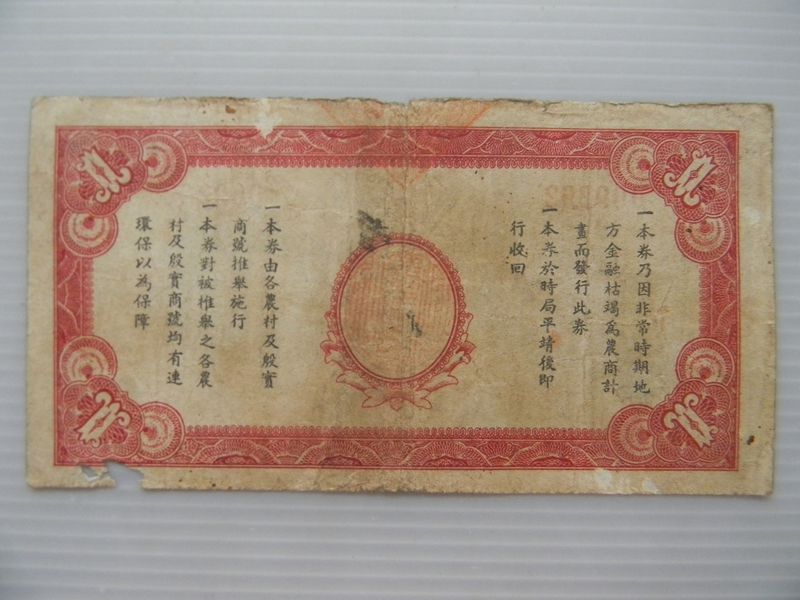 一本券乃因非常時期地
方金融枯竭為農商計
畫而發行此券
一本券於時局平靖後即
行收回
一本券由各農村及殷實
商號推舉施行
一本券對被推舉之各農
村及殷實商號均有連
環保以為保障